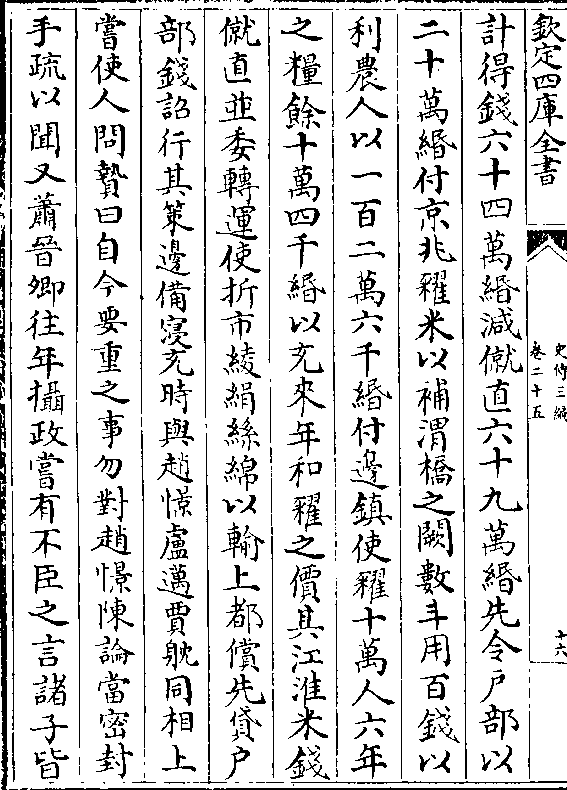 欽定四庫全書
史傳三編
卷二十五
十六
計得錢六十四萬緡減僦直六十九萬緡先令户部以
二十萬緡付京兆糴米以補渭橋之闕數斗用百錢以
利農人以一百二萬六千緡付邊鎮使糴十萬人六年
之糧餘十萬四千緡以充來年和糴之價其江淮米錢
僦直並委轉運使折市綾絹絲綿以輸上都償先貸户
部錢詔行其策邊備寖充時與趙憬盧邁賈躭同相上
嘗使人問贄曰自今要重之事勿對趙憬陳論當密封
手疏以聞又蕭晉卿往年攝政嘗有不臣之言諸子皆